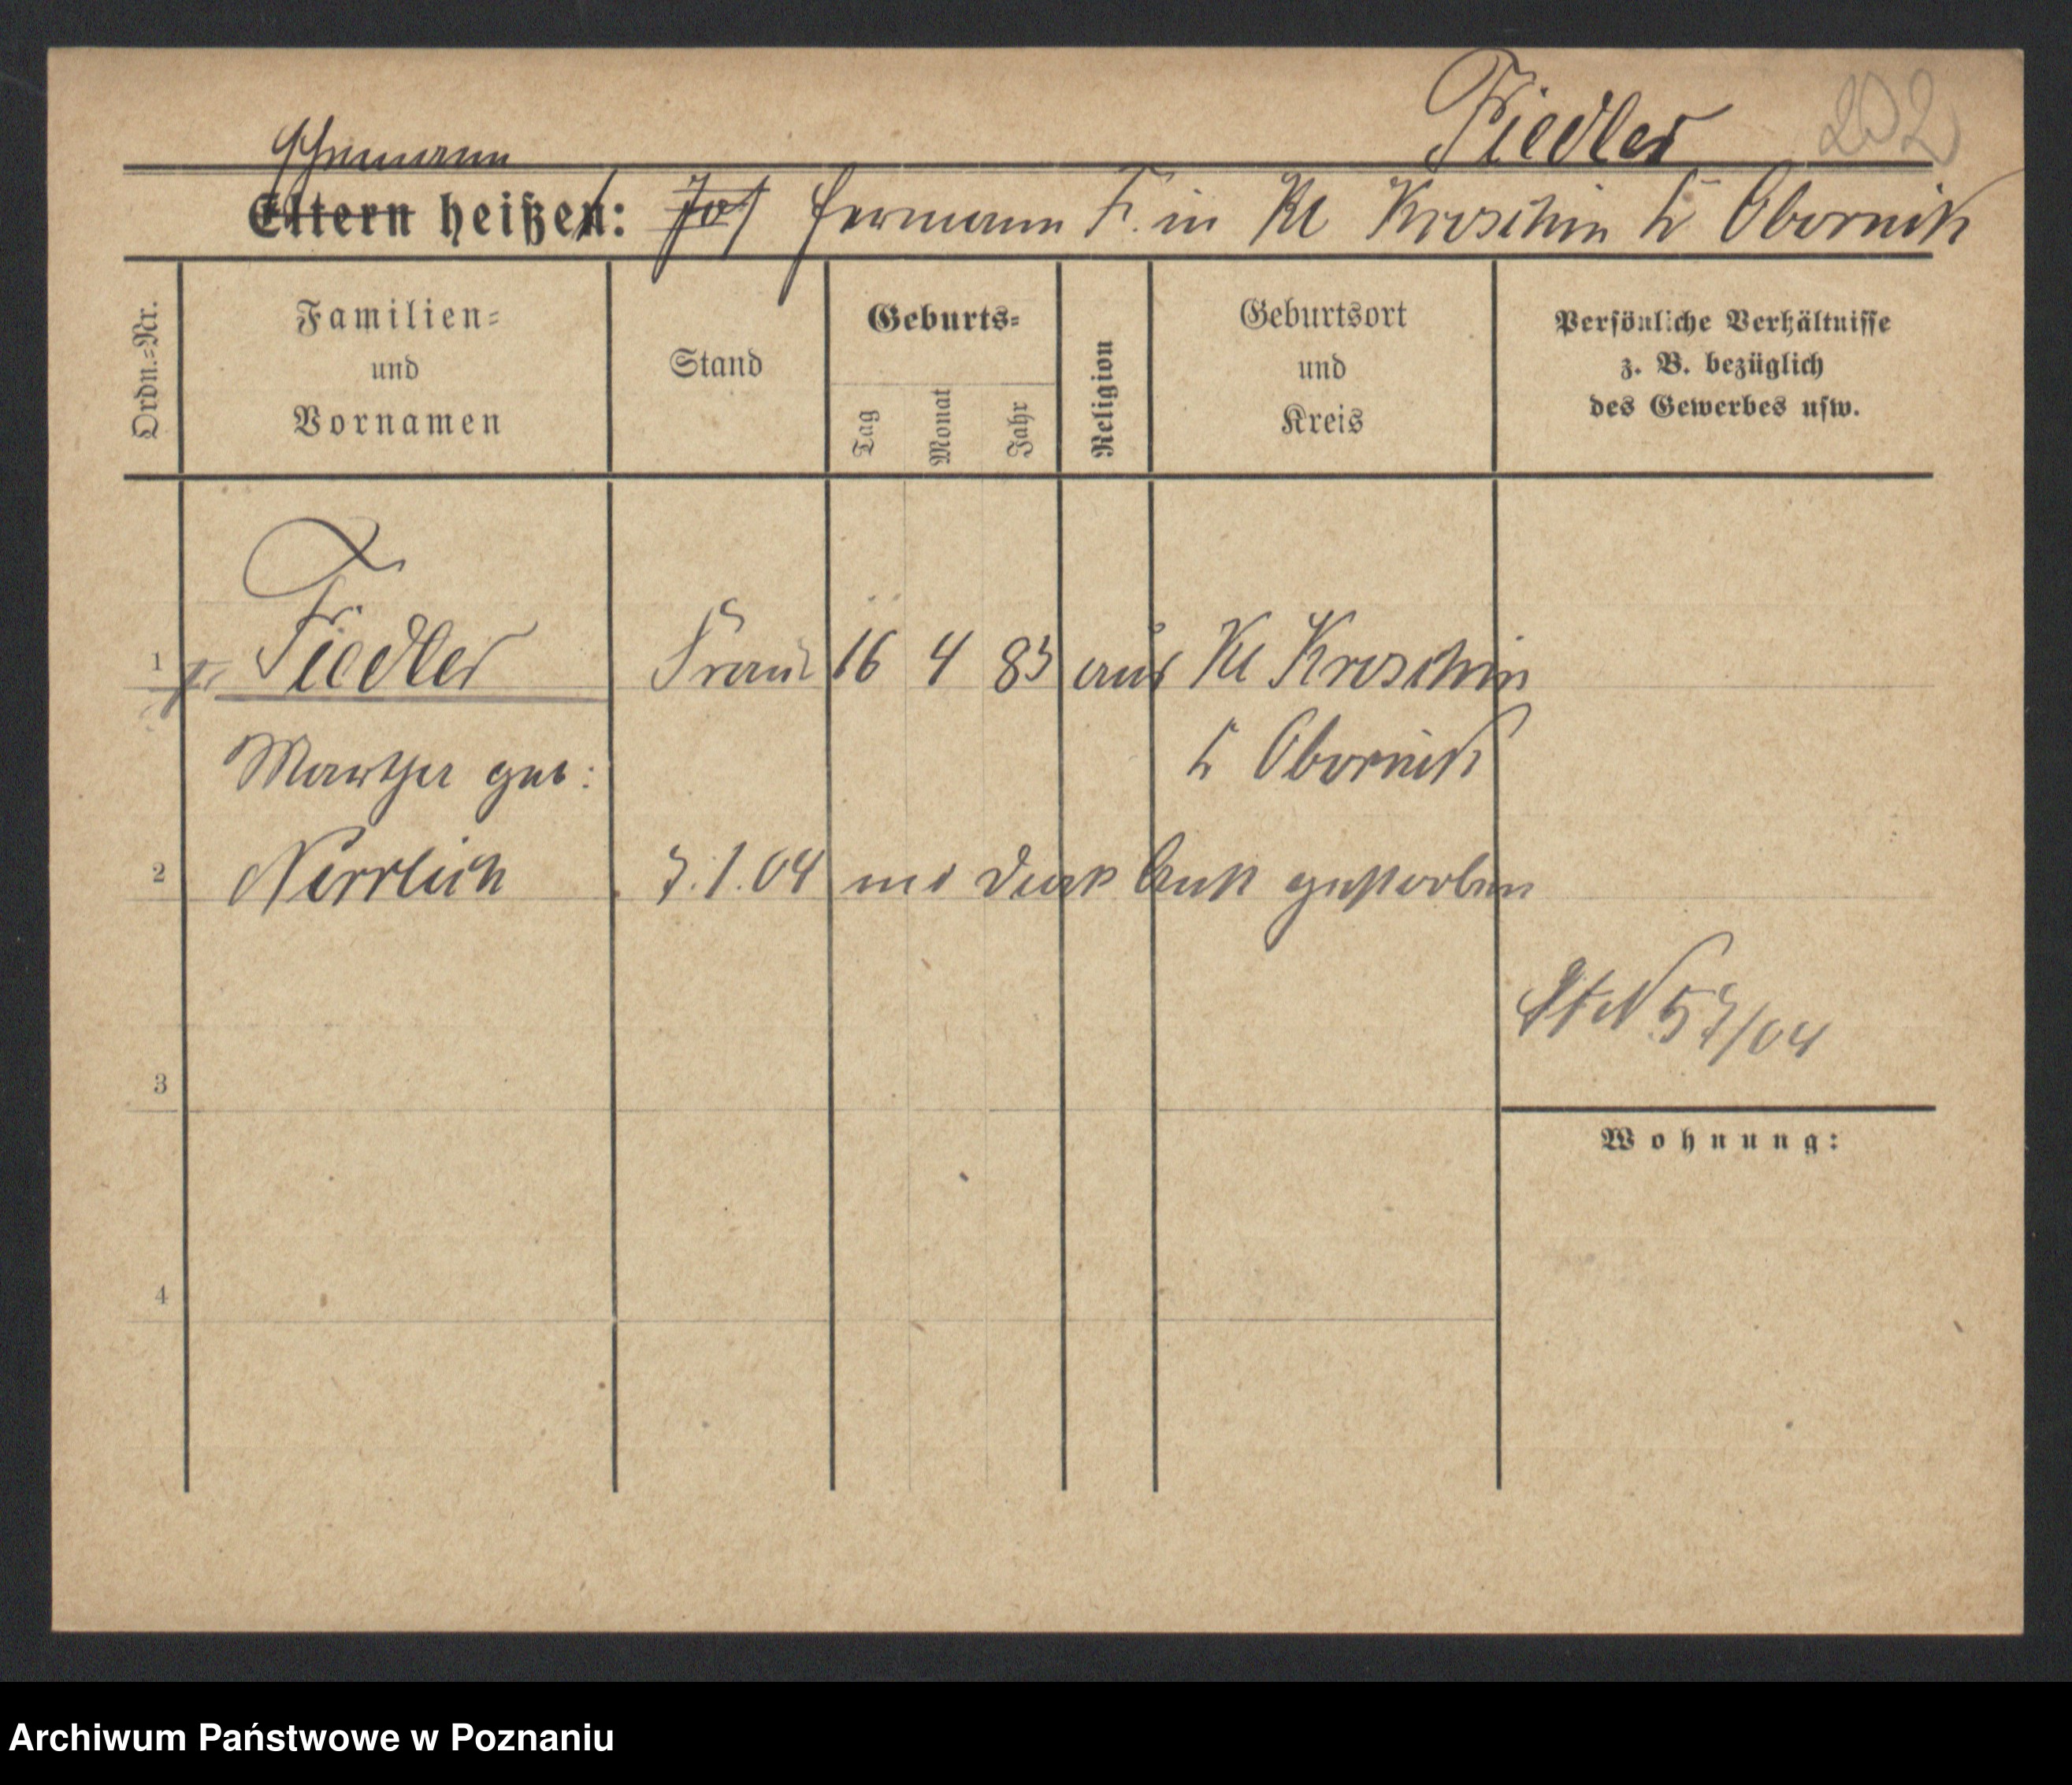 Fiedler 202
Ehemann
Eltern heißen: Jos Hermann F. in Kl Kroschin Kr Obornik
Ordn.-Nr.
Familien-
und
Vornamen
Stand
Geburts-
Tag
Monat
Jahr
Religion
Geburtsort
und
Kreis
Persönliche Verhältnisse
z. B. bezüglich
des Gewerbes usw.
1 Fiedler Frau 16 4 83 aus Kl Kroschin
Martha geb: Kr Obornik
2 Nerrlich 7.1.04 gestorben
St N 57/04
3
Wohnung:
4
Archiwum Państwowe w Poznaniu